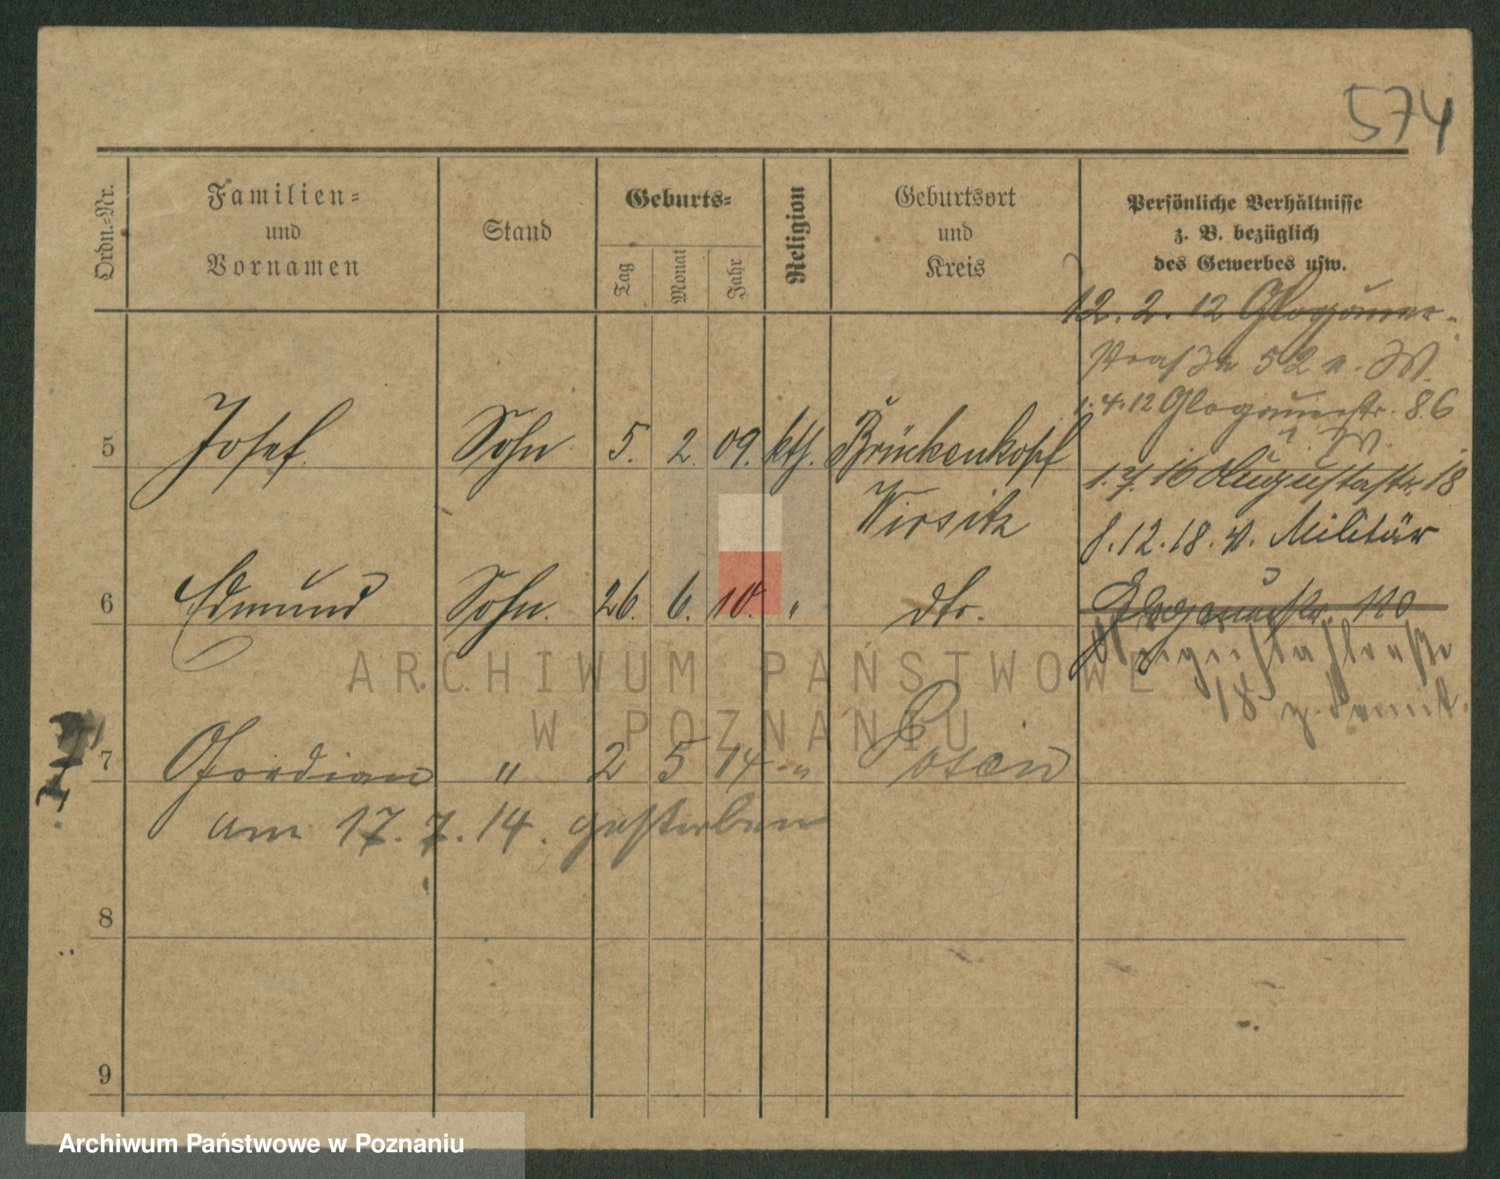 574
Ordn.-Nr.
Familien-
und
Vornamen
Stand
Geburts-
Tag
Monat
Jahr
Religion
Geburtsort
und
Kreis
Persönliche Verhältnisse
z. B. bezüglich
des Gewerbes usw.
12. 2. 12 Glogauer-
straße 52 n. W.
1. 4. 12 Glogauerstr. 86
n. W.
5 Josef Sohn 5. 2. 09. kth. Brückenkopf
Wirsitz
1. 7. 16 Augustastr. 18
8. 12. 18. v. Militär
6 Edmund Sohn. 26. 6. 10. " dto.
Glogauerstr. 110
Augustastraße
18
7 Gordian " 2 5 14 " Posen
am 17. 7. 14. gestorben
8
9
ARCHIWUM PAŃSTWOWE
W POZNANIU
Archiwum Państwowe w Poznaniu